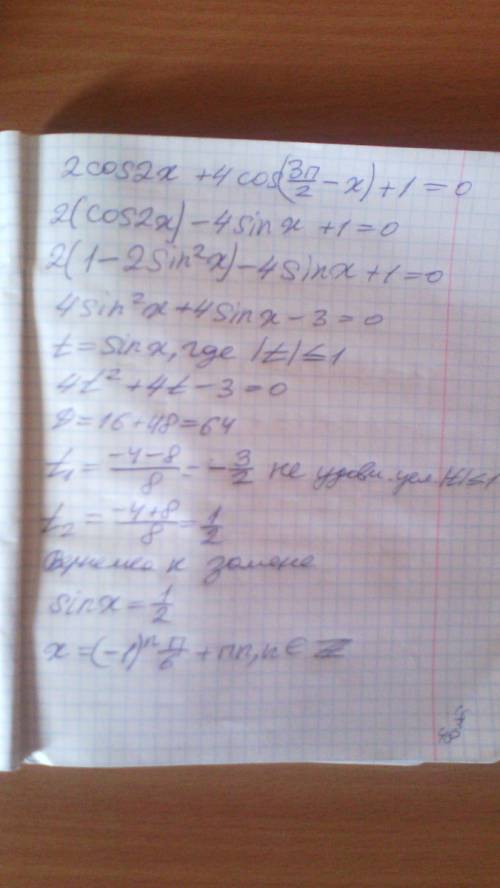 2cos2x + 4cos(3π/2 - x) + 1 = 0
2(cos2x) - 4sinx + 1 = 0
2(1 - 2sin²x) - 4sinx + 1 = 0
4sin²x + 4sinx - 3 = 0
t = sinx, где |t| ≤ 1
4t² + 4t - 3 = 0
D = 16 + 48 = 64
t₁ = (-4-8)/8 = -3/2 не удовл. усл. |t| ≤ 1
t₂ = (-4+8)/8 = 1/2
Вернемся к замене
sinx = 1/2
x = (-1)ⁿ π/6 + πn, n ∈ Z